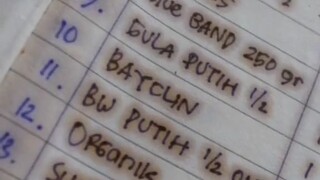 9. BLUE BAND 250 gr
10 GULA PUTIH 1/2
11. BAYCLIN
12. BW PUTIH 1/2
13. Organik